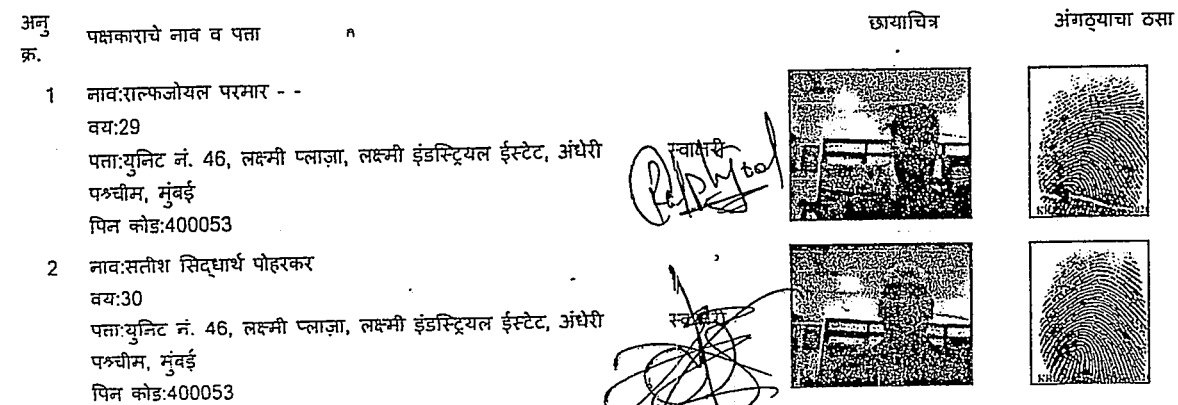 अनु क्र. पक्षकाराचे नाव व पत्ता छायाचित्र अंगठ्याचा ठसा
1 नाव:राल्फजोयल परमार - -
वय:29
पत्ता:युनिट नं. 46, लक्ष्मी प्लाज़ा, लक्ष्मी इंडस्ट्रियल ईस्टेट, अंधेरी स्वाक्षरी
पश्चीम, मुंबई
पिन कोड:400053
2 नाव:सतीश सिद्धार्थ पोहरकर
वय:30
पत्ता:युनिट नं. 46, लक्ष्मी प्लाज़ा, लक्ष्मी इंडस्ट्रियल ईस्टेट, अंधेरी स्वाक्षरी
पश्चीम, मुंबई
पिन कोड:400053